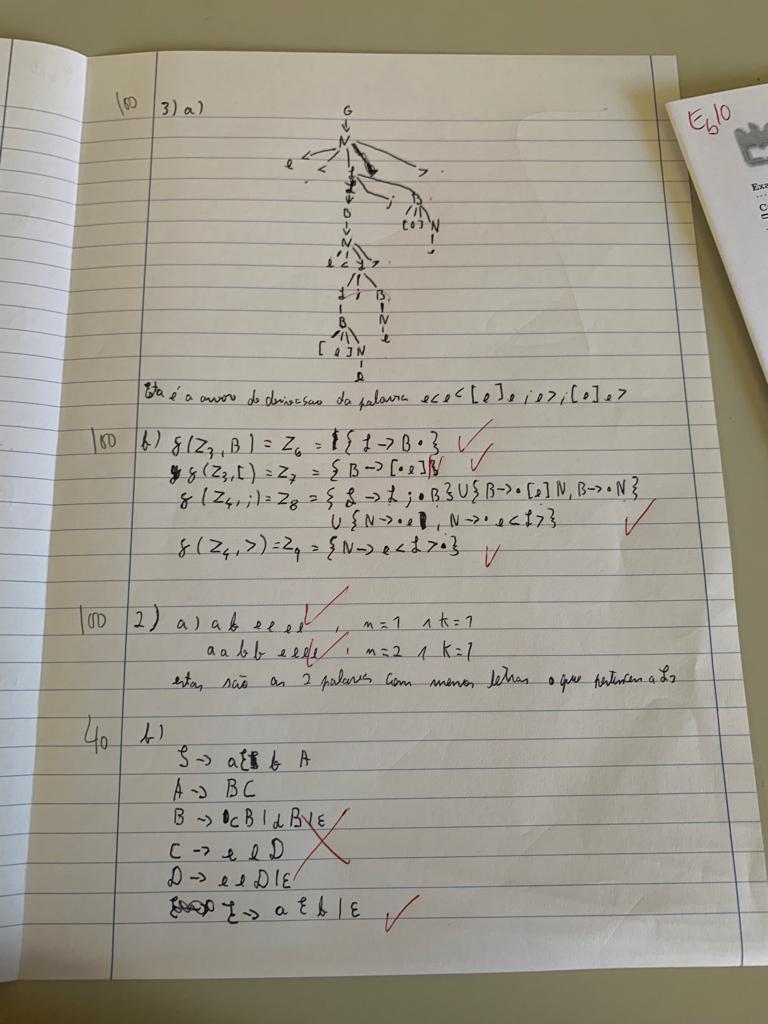 100 3) a)
G
N
e < >
; B
D [o] N
N
e < L >
L ; B
B N
[ e ] N e
e
Esta é a da palavra e<e<[e]e;e>;[e]e>
100 b) δ(Z3, B) = Z6 = {L → B•}
δ(Z3, [) = Z7 = {B → [•e]N}
δ(Z4, ;) = Z8 = {L → L;•B} U {B → •[e]N, B → •N}
U {N → •e, N → •e<L>}
δ(Z4, >) = Z9 = {N → e<L>•}
100 2) a) a b e e e e , n=1 ∧ k=1
a a b b e e e e , n=2 ∧ k=1
estas são as 2 palavras com menos letras que pertencem a L2
40 b)
S → a E b A
A → B C
B → c B | d B | ε
C → e e D
D → e e D | ε
E → a E b | ε
Eb10
Exa
C